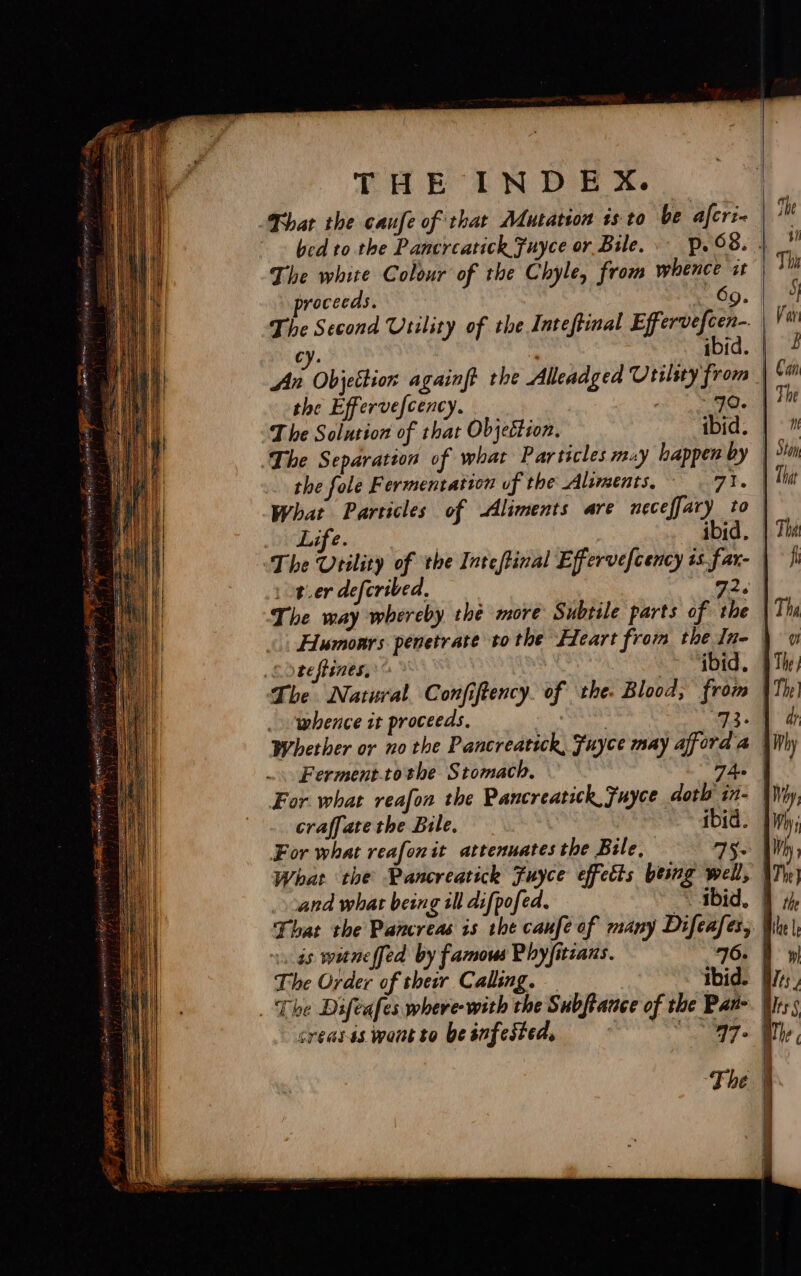 THE INDEX.
That the cauſe of that Mutation is to be aſcri-
bed to the Pancreatick Juyce or Bile. p. 68.
The white Colour of the Chyle, from whence it
proceeds. 69.
The Second Utility of the Inteſtinal Efferveſcen-
cy. ibid.
An Objection againſt the Alleadged Utility from
the Efferveſcency. 70.
The Solution of that Objection. ibid.
The Separation of what Particles may happen by
the ſole Fermentation of the Aliments. 71.
What Particles of Aliments are neceſſary to
Life. ibid.
The Utility of the Inteſtinal Efferveſcency is far-
ther deſcribed. 72.
The way whereby the more Subtile parts of the
Humours penetrate to the Heart from the In-
teſtines. ibid.
The Natural Conſiſtency of the Blood, from
whence it proceeds. 73.
Whether or no the Pancreatick Juyce may afford a
Ferment to the Stomach. 74.
For what reaſon the Pancreatick Juyce doth in-
craſſate the Bile. ibid.
For what reaſon it attenuates the Bile. 75.
What the Pancreatick Juyce effects being well,
and what being ill diſpoſed. ibid.
That the Pancreas is the cauſe of many Diſeaſes,
is witneſſed by famous Phyſitians. 76.
The Order of their Calling. ibid.
The Diſeaſes where-with the Subſtance of the Pan-
creas is wont to be infeſted. 77.
The